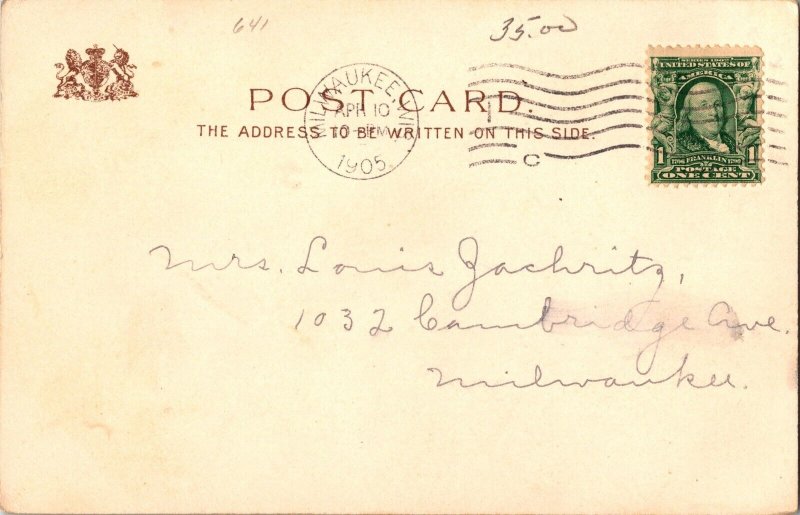 641
35.00
SERIES 1902
UNITED STATES OF
AMERICA
POST CARD.
MILWAUKEE, WIS.
APR 10
PM
1905
THE ADDRESS TO BE WRITTEN ON THIS SIDE.
C
1 1706 FRANKLIN 1790 1
POSTAGE
ONE CENT
Mrs. Louis Jachritz,
1032 Cambridge Ave.
Milwaukee.